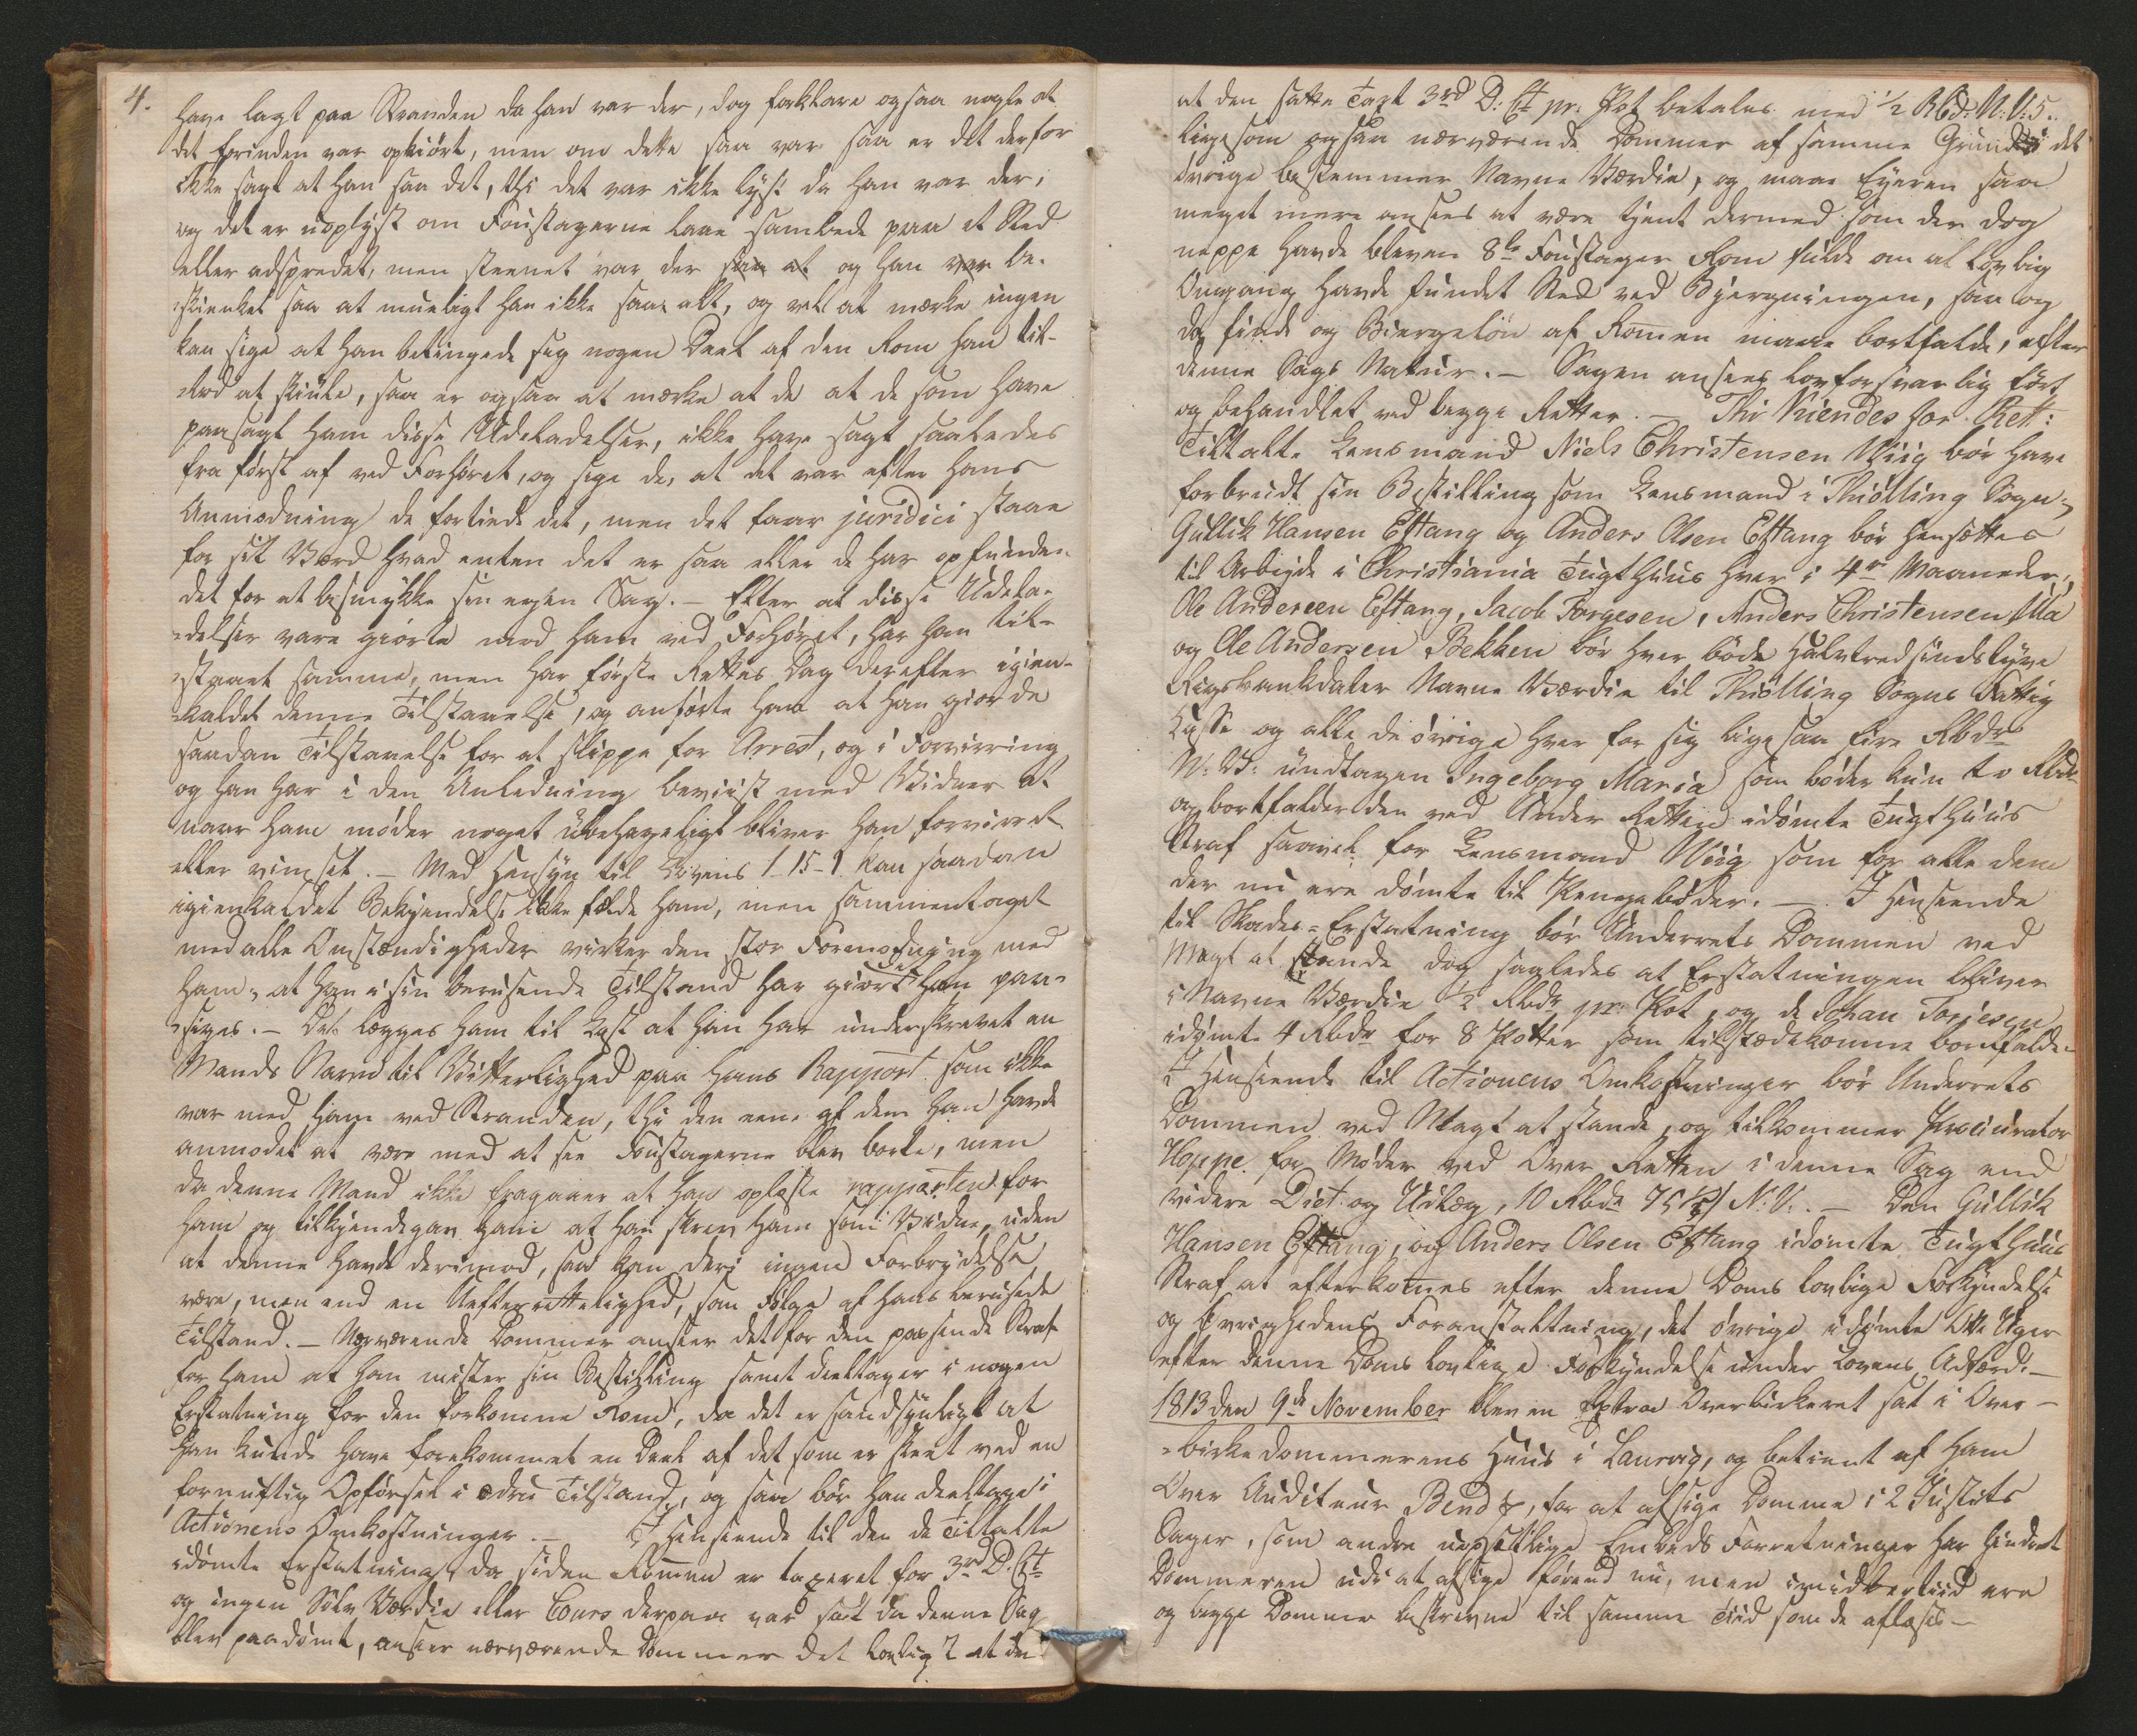 4.
have lagt paa Stranden da han var der, dog forklare ogsaa nogle at
det forinden var opkiört, men om dette saa var saa er det derfor
ikke sagt at han saa det, thi det var ikke lyst da han var der,
og det er uoplyst om Foustagerne laae sambede paa et Sted
eller adspredet, men steenet var der og han var be-
skienket saa at mueligt han ikke saae alt, og vel at mærke ingen
kan sige at han betingede sig nogen Deel af den Rom han til-
lod at skiule, saa er ogsaa at mærke at de at de som have
paasagt ham disse Udeladelser, ikke have sagt saaledes
fra först af ved Forhöret, og sige de, at det var efter hans
Anmodning de fortiede det, men det faar juridici staae
for sit Værd hvad enten det er saa eller de har opfunden
det for at besmykke sin egen Sag. – Efter at disse Udela-
delser vare giorte mod ham ved Forhöret, har han til-
staaet samme, men har förste Rettes Dag derefter igien-
kaldet denne Tilstaaelse, og anförte han at han giorde
saadan Tilstaaelse for at slippe for Arrest, og i Forvirring
og han har i den Anledning beviist med Vidner at
naar ham möder noget ubehageligt bliver han forvirret
eller vimset. – Med Hensyn til Lovens 1-15-1. kan saadan
igienkaldet Bekjendelse ikke fælde ham, men sammentaget
med alle Omstændigheder virker den stor Formodning mod
ham, at han i sin berusende Tilstand har giort det ham paa-
siges. – Det lægges ham til Last at han har underskrevet en
Mands Navn til Vitterlighed paa hans Rapport som ikke
var med ham ved Stranden, thi den eene af dem han havde
anmodet at være med at see Foustagerne blev borte, men
da denne Mand ikke fragaaer at han oplæste rapporten for
ham og tilkjendegav ham at han skrev ham som Vidne, uden
at denne havde derimod, saa kan deri ingen Forbrydelse
være, men end en Uefterrettelighed, som Fölge af hans berusede
Tilstand. – Nærværende Dommer anseer det for den passende Straf
for ham at han mister sin Bestilling samt deeltager i nogen
Erstatning for den forkomne Rom, da det er sandsynligt at
han kunde have forekommet en Deel af det som er skeet ved en
fornuftig Opförsel i ædru Tilstand, og saa bör han deeltage i
Actionens Omkostninger. – I Henseende til den de Tiltalte
idömte Erstatning, da siden Rommen er taxeret for 3rd D. Ct
og ingen Sölv Værdie eller Cours derpaa var sat da denne Sag
blev paadömt, anseer nærværende Dommer det lovligt at den
at den satte Taxt 3rd D: Ct pr. Pot betales med ½ Rbd: N: V: 5.
ligesom ogsaa nærværende Dommer af samme Grund i det
övrige bestemmer Navne Værdie, og maae Eyeren saa
meget mere ansees at være tjent dermed som der dog
neppe havde bleven 8te Foustager Rom fulde om al lovlig
Omgang havde fundet Sted ved Bjergningen, saa og
da finde og Biergelön af Rommen maae bortfalde, efter
denne Sags Natur. – Sagen ansees lovforsvarlig fört
og behandlet ved begge Retter. – Thi Kiendes for Ret:
Tiltalte Lensmand Niels Christensen Wiig bör have
forbrudt sin Bestilling som Lensmand i Thiölling Sogn,
Gullik Hansen Eftang og Anders Olsen Eftang bör hensættes
til Arbejde i Christiania Tugthuus hver i 4re Maaneder,
Ole Andersen Eftang, Jacob Torgesen, Anders Christensen Ula
og Ole Andersen Bekken bör hver böde Halvtredsindstyve
Rigsbankdaler Navne Værdie til Thiölling Sogns Fattig
Casse og alle de övrige hver for sig ligesaa fire Rbdr
N: V: undtagen Ingeborg Maria som böder kun to Rbd
og bortfalder den ved Under Retten idömte Tugthuus
Straf saavel for Lensmand Wiig som for alle dem
der nu ere dömte til Pengeböder. – I Henseende
til Skades-Erstatning bör Underrets Dommen ved
Magt at stande dog saaledes at Erstatningen bliver
i Navne Værdie ½ Rbdr pr: Pot, og de Johan Torjesen
idömte 4 Rbdr for 8 Potter som tilstædekomne bortfalde.
I Henseende til Actionens Omkostninger bör Underrets
Dommen ved Magt at stande, og tilkommer Procurator
Hoppe for Möder ved Over Retten i denne Sag end
videre Diet og Udlæg, 10 Rbdr 75 N: V. – Den Gullik
Hansen Eftang, og Anders Olsen Eftang idömte Tugthuus
Straf at efterkomes efter denne Doms lovlige Forkyndelse
og Övrighedens Foranstaltning, det övrige idömte Otte Uger
efter denne Doms lovlige Forkyndelse under Lovens Adfærd. –
1813 den 9de November blev en Extra Overbirkeret sat i Over-
birkedommerens Huus i Laurvig, og betient af ham
Over Auditeur Bendz, for at afsige Domme i 2 Justits
Sager, som andre uopsettlige Embeds Forretninger har hindret
Dommeren udi at afsige förend nu, men imidlertiid ere
og begge Domme beskrevne til samme Tiid som de aflæses –